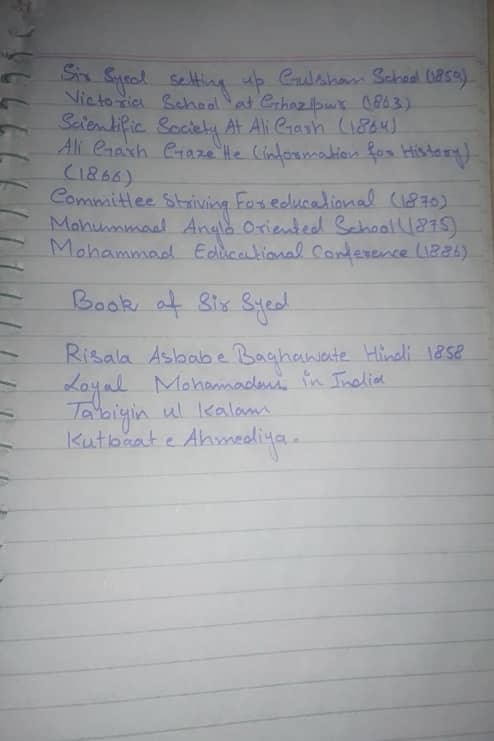 Sir Syed setting up Gulshan School (1859)
Victoria School at Ghazipur (1863)
Scientific Society At Ali Garh (1864)
Ali Garh Gazette (information for History)
(1866)
Committee Striving For educational (1870)
Mohummad Anglo Oriented School (1875)
Mohammad Educational Conference (1886)
Book of Sir Syed
Risala Asbab e Baghawate Hindi 1858
Loyal Mohamadens in India
Tabiyin ul Kalam
Kutbaat e Ahmediya.